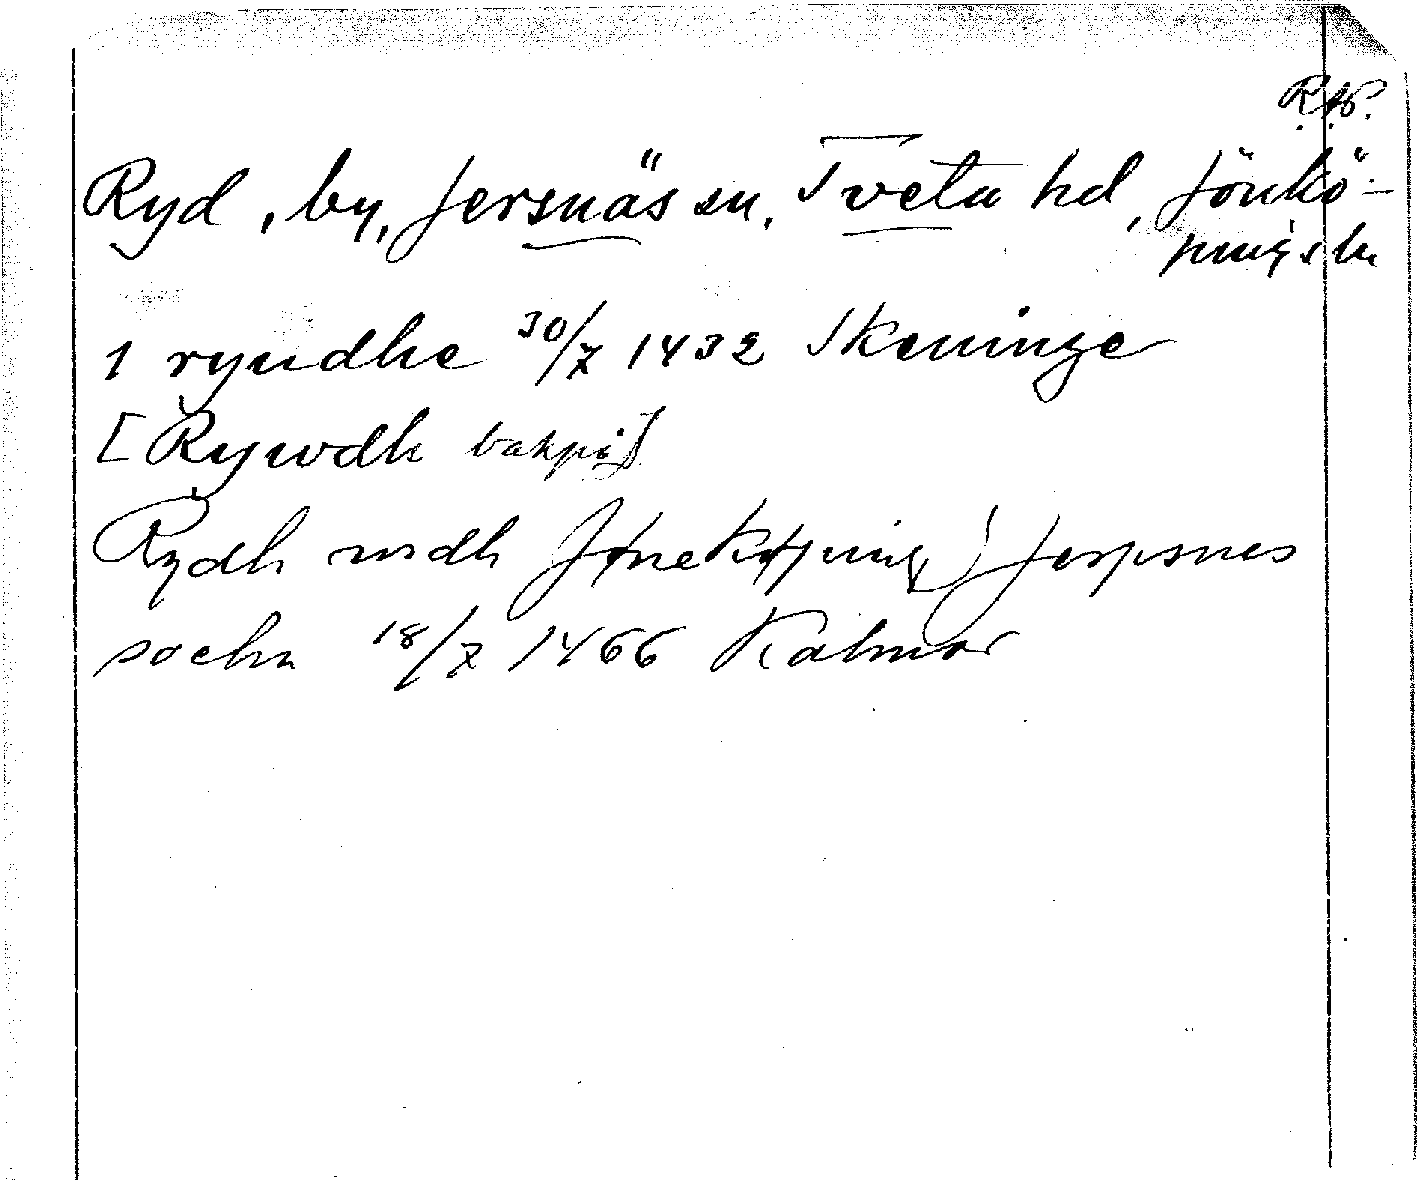 R.A.P.
Ryd, by, Jersnäs sn, Tveta hd, Jönkö-
pings ln
1 ryudhe 30/7 1432 Skeninge
[Rywdh bakpå]
Rydh widh Jønekøping j Jerpsnes
sochn 18/7 1466 Kalmar